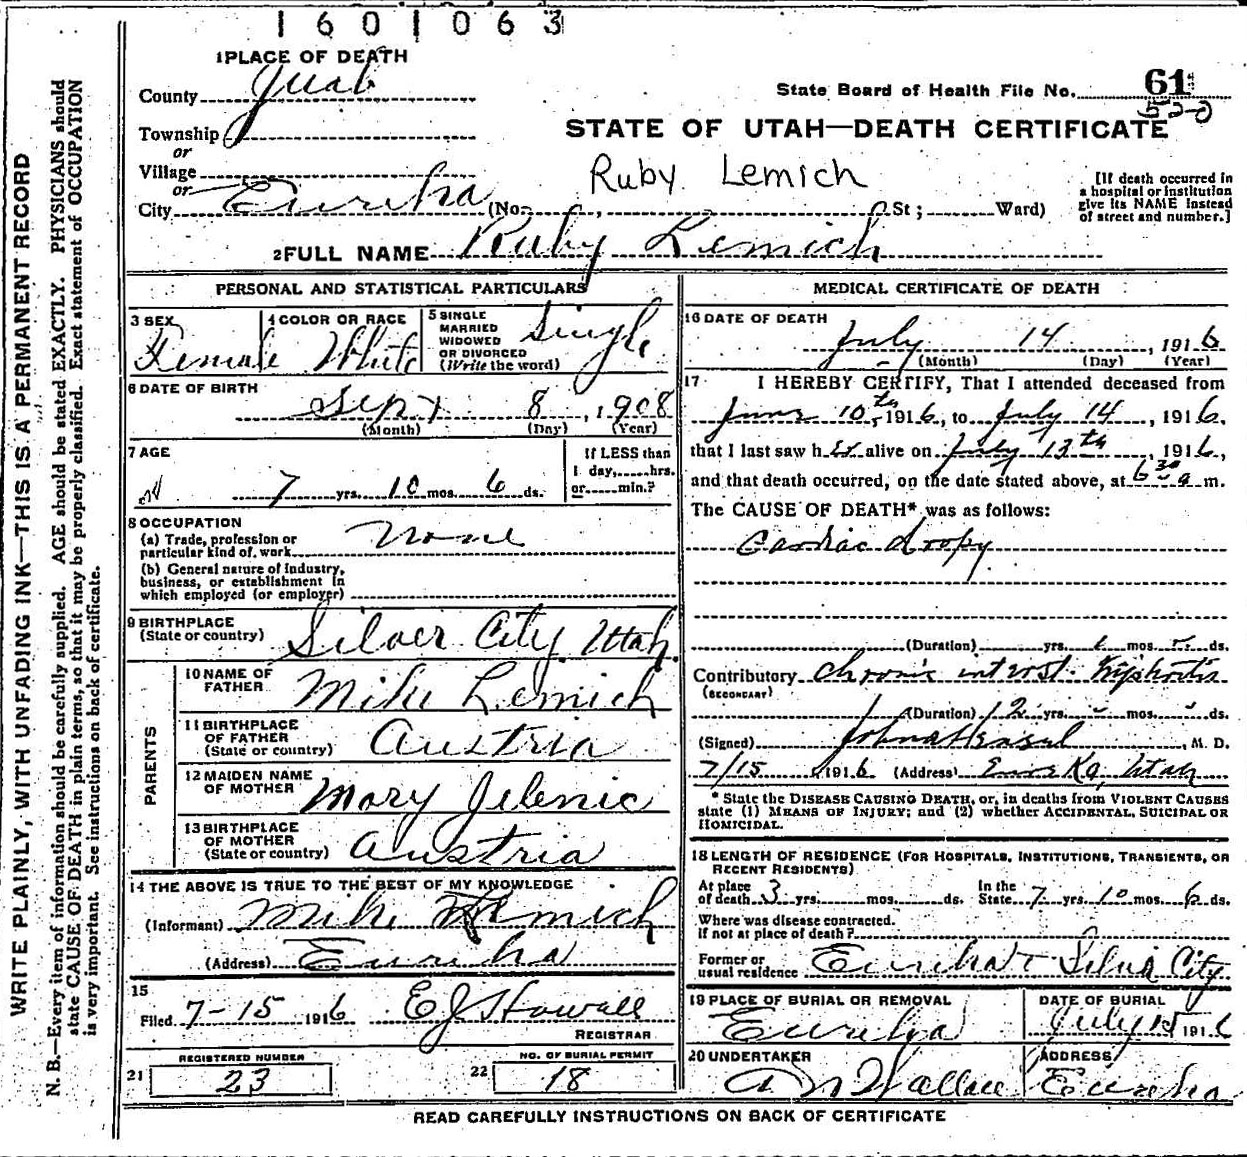 1601063
1 PLACE OF DEATH
County Juab
State Board of Health File No. 61
520
Township
or
STATE OF UTAH—DEATH CERTIFICATE
Village
or
Ruby Lemich
City Eureka (No. , St ; Ward)
[If death occurred in
a hospital or institution
give its NAME instead
of street and number.]
2 FULL NAME Ruby Lemich
PERSONAL AND STATISTICAL PARTICULARS
3 SEX
Female
4 COLOR OR RACE
White
5 SINGLE
MARRIED
WIDOWED
OR DIVORCED
(Write the word)
Single
6 DATE OF BIRTH
Sept 8, 1908
(Month) (Day) (Year)
7 AGE
7 yrs. 10 mos. 6 ds.
If LESS than
1 day, hrs.
or min.?
8 OCCUPATION
(a) Trade, profession or
particular kind of work None
(b) General nature of industry,
business, or establishment in
which employed (or employer)
9 BIRTHPLACE
(State or country) Silver City Utah.
PARENTS
10 NAME OF
FATHER Mike Lemich
11 BIRTHPLACE
OF FATHER
(State or country) Austria
12 MAIDEN NAME
OF MOTHER Mary Jelenic
13 BIRTHPLACE
OF MOTHER
(State or country) Austria
14 THE ABOVE IS TRUE TO THE BEST OF MY KNOWLEDGE
(Informant) Mike Lemich
(Address) Eureka
15
Filed 7-15 1916 EJ Howall
REGISTRAR
REGISTERED NUMBER
21 23
NO. OF BURIAL PERMIT
22 18
MEDICAL CERTIFICATE OF DEATH
16 DATE OF DEATH
July 14, 1916
(Month) (Day) (Year)
17 I HEREBY CERTIFY, That I attended deceased from
June 10th, 1916, to July 14, 1916,
that I last saw her alive on July 13th, 1916,
and that death occurred, on the date stated above, at 6 30 a m.
The CAUSE OF DEATH* was as follows:
Cardiac dropy
(Duration) yrs. mos. ds.
Contributory Chronic interst.
(SECONDARY)
(Duration) yrs. mos. ds.
(Signed) , M. D.
7/15 1916 (Address) Eureka, Utah
* State the DISEASE CAUSING DEATH, or, in deaths from VIOLENT CAUSES
state (1) MEANS OF INJURY; and (2) whether ACCIDENTAL, SUICIDAL OR
HOMICIDAL.
18 LENGTH OF RESIDENCE (FOR HOSPITALS, INSTITUTIONS, TRANSIENTS, OR
RECENT RESIDENTS)
At place
of death 3 yrs. mos. ds.
In the
State 7 yrs. 10 mos. 6 ds.
Where was disease contracted.
If not at place of death?
Former or
usual residence Eureka + Silver City
19 PLACE OF BURIAL OR REMOVAL
Eureka
DATE OF BURIAL
July 15 1916
20 UNDERTAKER
Wallace
ADDRESS
Eureka
READ CAREFULLY INSTRUCTIONS ON BACK OF CERTIFICATE
WRITE PLAINLY, WITH UNFADING INK—THIS IS A PERMANENT RECORD
N. B.—Every item of information should be carefully supplied. AGE should be stated EXACTLY. PHYSICIANS should
state CAUSE OF DEATH in plain terms, so that it may be properly classified. Exact statement of OCCUPATION
is very important. See instructions on back of certificate.